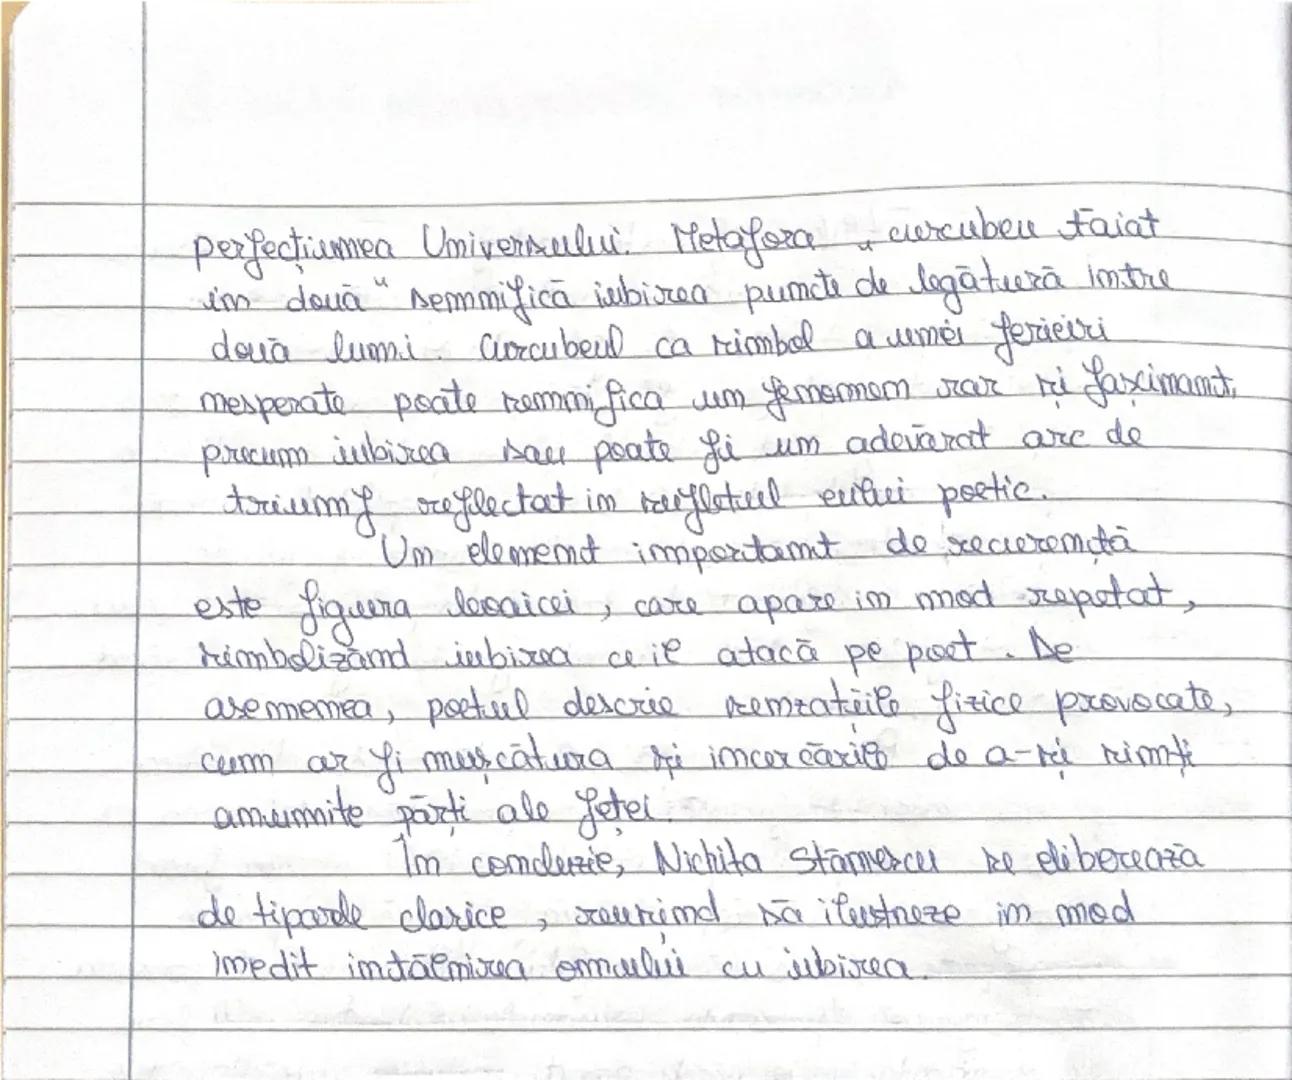 perfecțiunea Universului. Metafora „curcubeu tăiat
în două" semnifică iubirea puncte de legătură între
două lumi. Curcubeul ca simbol a unei fericiri
nesperate poate semnifica un fenomen rar și fascinant,
precum iubirea sau poate fi un adevărat arc de
triumf reflectat în sufletul eului poetic.
Un element important de recurență
este figura leoaicei, care apare în mod repetat,
simbolizând iubirea ce îl atacă pe poet. De
asemenea, poetul descrie senzațiile fizice provocate,
cum ar fi mușcătura și încercările de a-și simți
anumite părți ale feței.
În concluzie, Nichita Stănescu se eliberează
de tiparele clasice, reușind să ilustreze în mod
inedit întâlnirea omului cu iubirea.